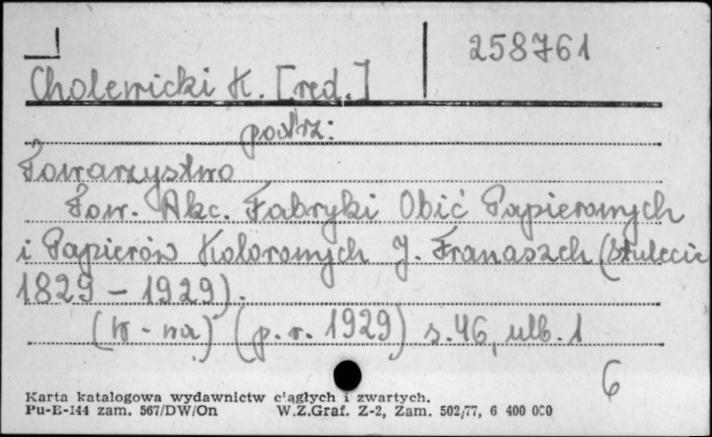 258761
Cholewicki K. [red.]
patrz:
Towarzystwo
Tow. Akc. Fabryki Obić Papierowych
i Papierów Kolorowych J. Franaszek (Stulecie
1829 - 1929).
(W-wa) (p. r. 1929) s. 46, ulb. 1
6
Karta katalogowa wydawnictw ciągłych i zwartych.
Pu-E-144 zam. 567/DW/On W.Z.Graf. Z-2, Zam. 502/77, 6 400 000